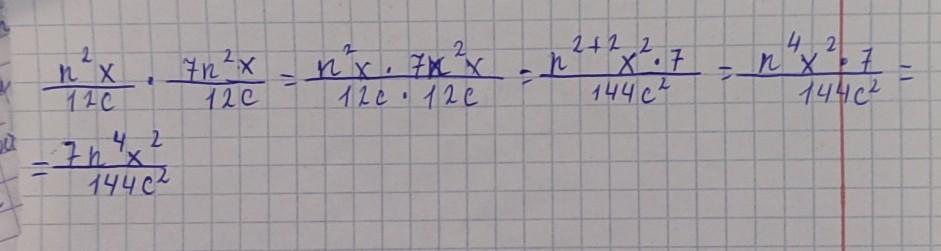 n²x/12c · 7n²x/12c = n²x · 7n²x/12c · 12c = n²⁺²x²·7/144c² = n⁴x²·7/144c² =
= 7n⁴x²/144c²